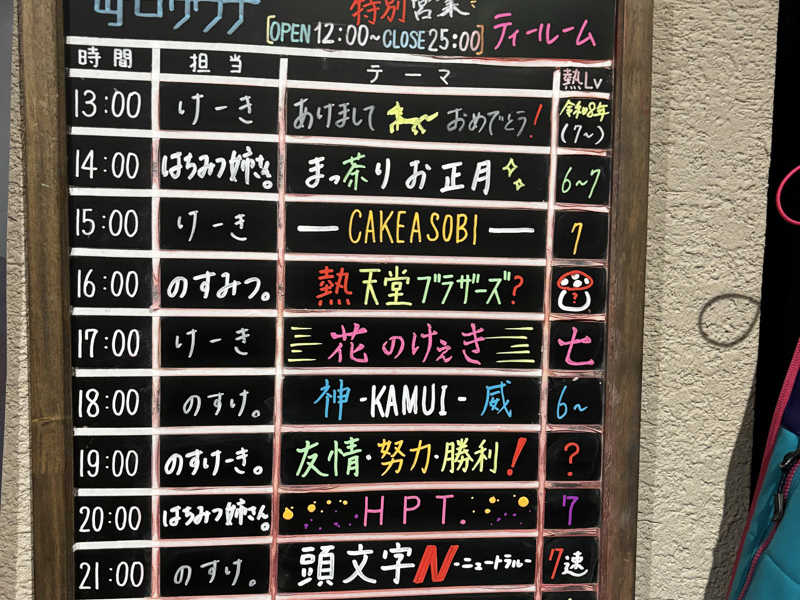 特別営業
[OPEN 12:00~CLOSE 25:00] ティールーム
時間 担当 テーマ 熱Lv
13:00 けーき あけまして おめでとう! 令和8年(7~)
14:00 はちみつ姉さん。 まっ茶りお正月 6~7
15:00 けーき ― CAKEASOBI ― 7
16:00 のすみつ。 熱天堂ブラザーズ? ?
17:00 けーき 花のけぇき 七
18:00 のすけ。 神-KAMUI-威 6~
19:00 のすけーき。 友情・努力・勝利! ?
20:00 はちみつ姉さん。 HPT. 7
21:00 のすけ。 頭文字N-ニュートラル- 7速